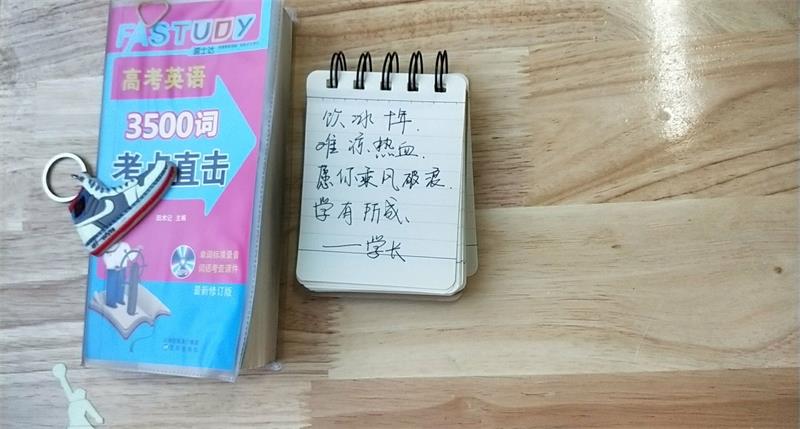 FASTUDY
高考英语
3500词
考点直击
主编
单词标准录音
词语考查课件
最新修订版
饮冰十年.
难凉热血.
愿你乘风破
学有所成、
——学长